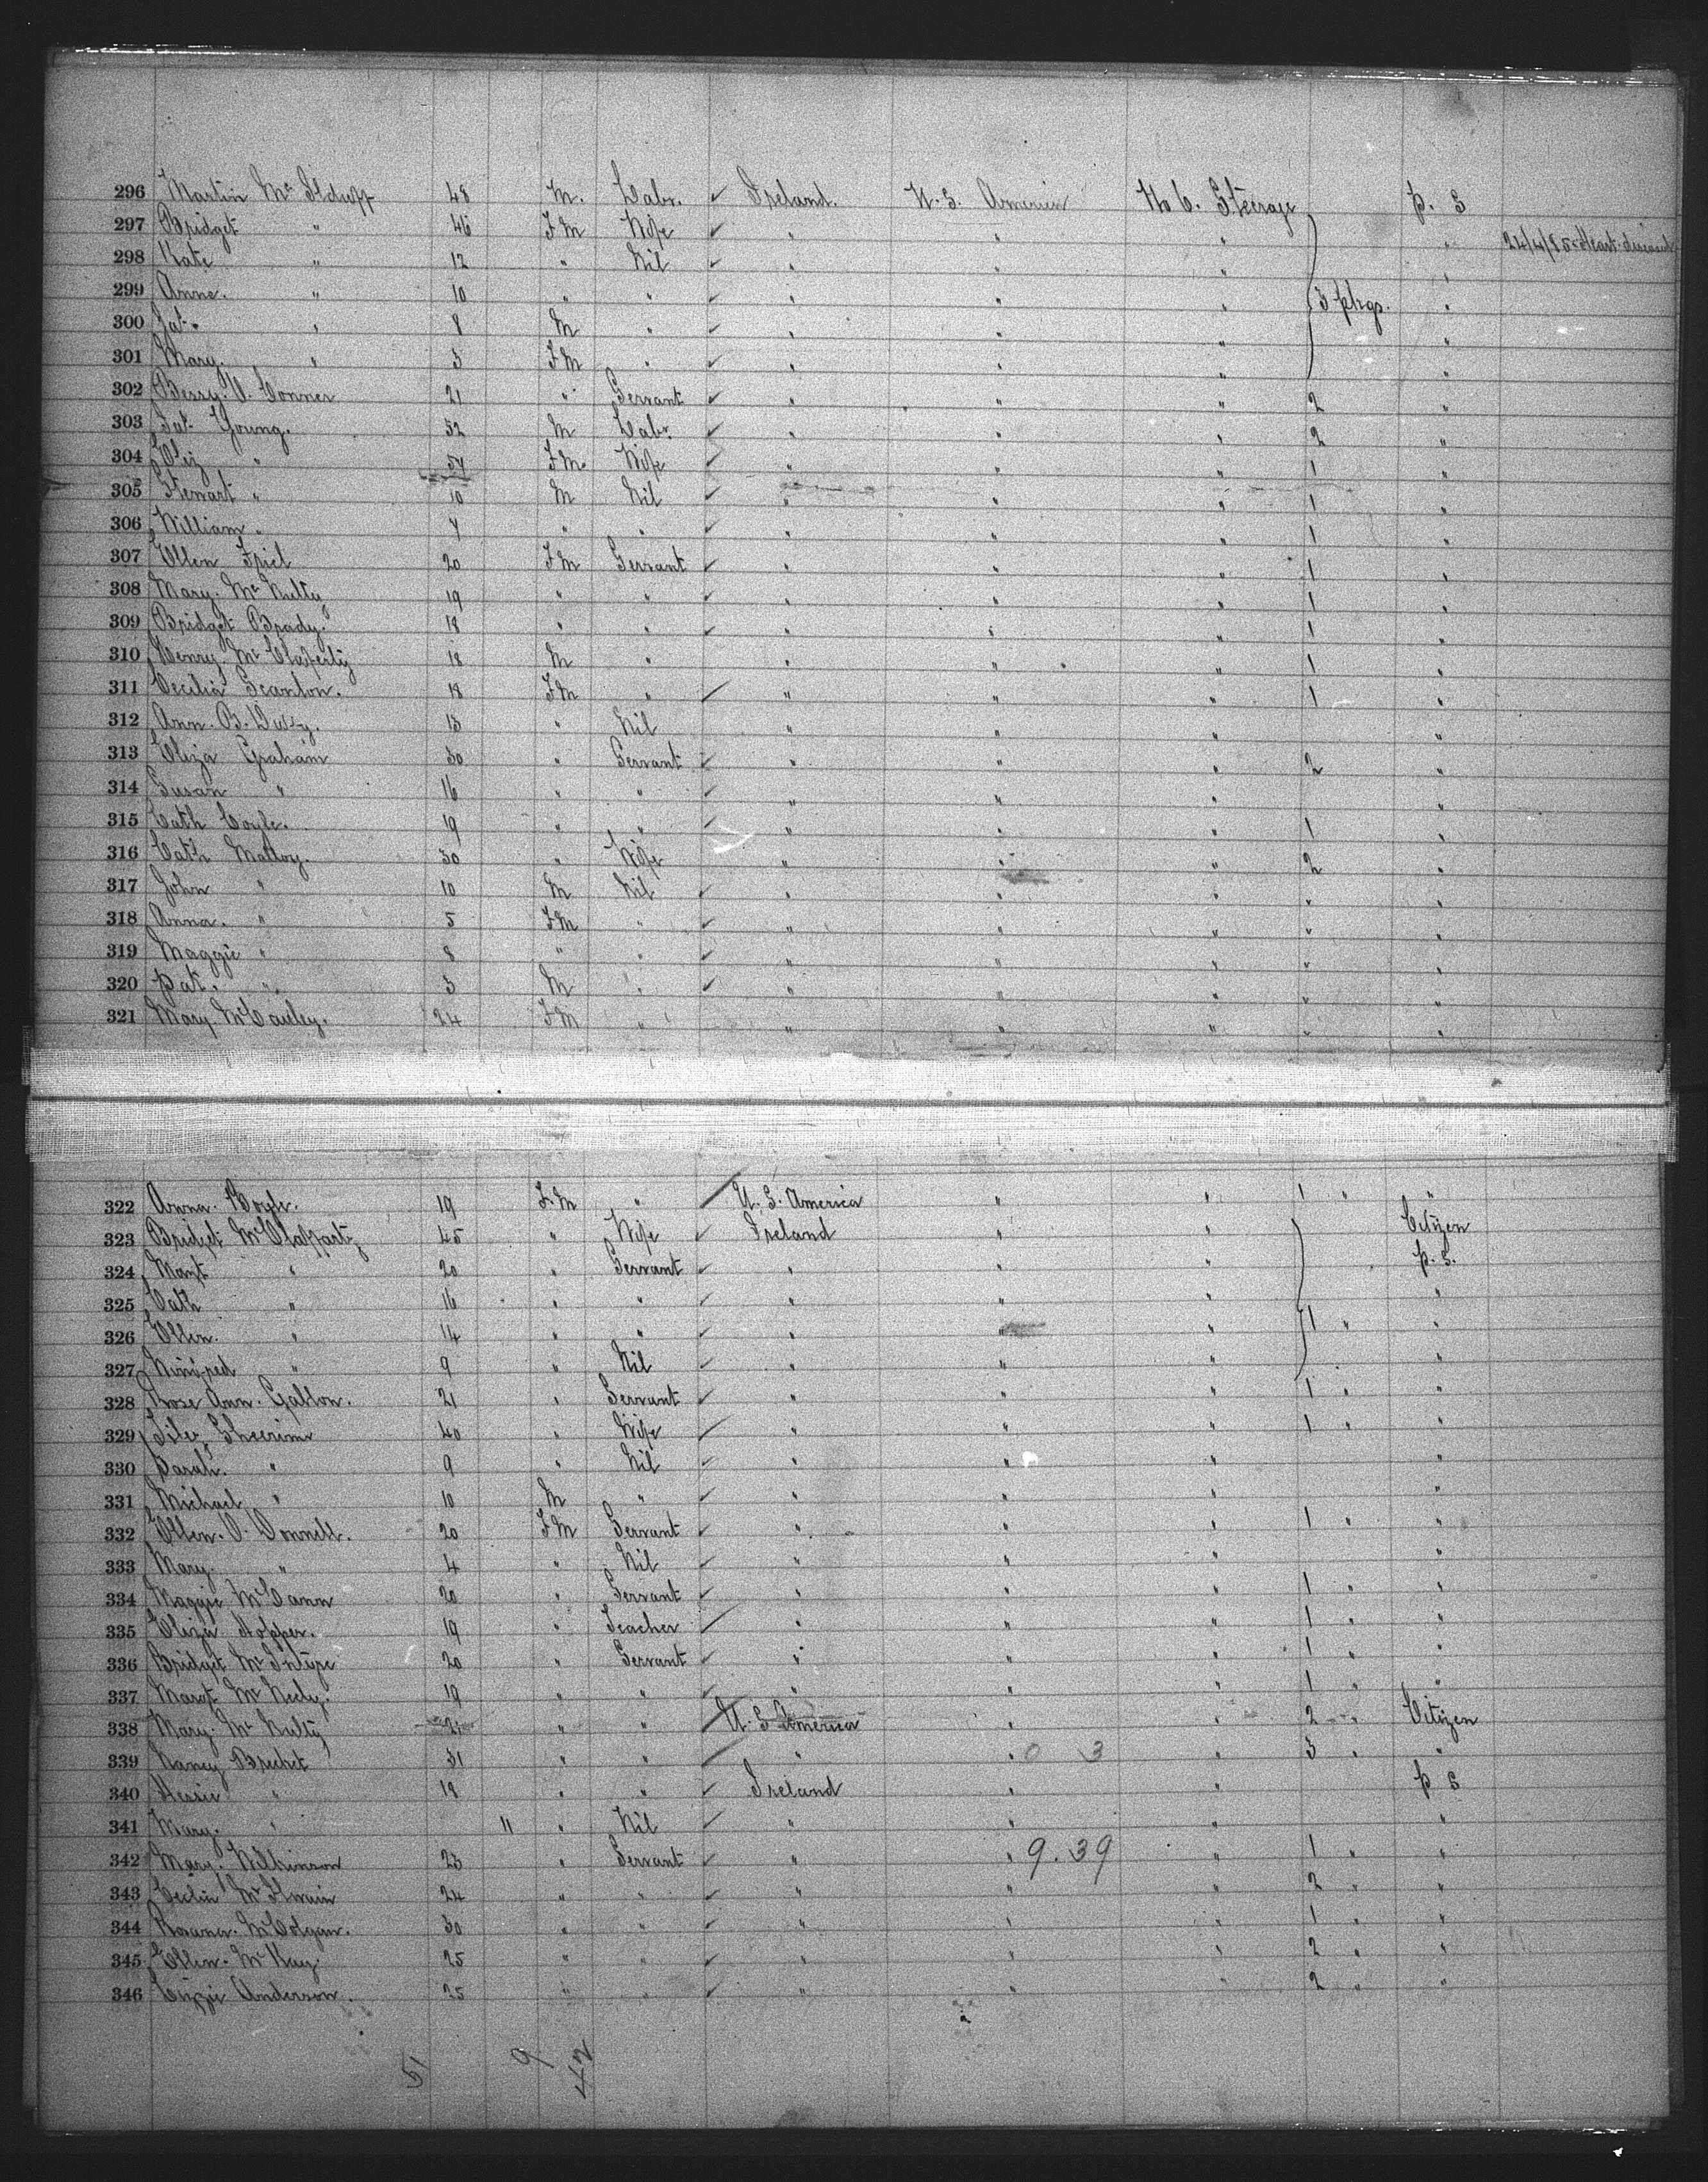 296 Martin Mc Ilduff 48 M. Labr. ✓ Ireland. U. S. America No 6. Steerage P. S
297 Bridget " 46 F M Wife ✓ " " " " 24/4/85 Heart disease
298 Kate " 12 " Nil ✓ " " " "
299 Anne. " 10 " " ✓ " " " 3 pkgs. "
300 Pat. " 8 M " ✓ " " " "
301 Mary. " 3 F M " ✓ " " " "
302 Bessy. O. Conner 21 " Servant ✓ " " " 2 "
303 Pat. Young. 52 M Labr ✓ " " " 2 "
304 Eliz " 54 F M. Wife ✓ " " " 1 "
305 Stewart " 10 M Nil ✓ " " " 1 "
306 William " 7 " " ✓ " " " 1 "
307 Ellen Friel 20 F M Servant ✓ " " " 1 "
308 Mary. Mc Nulty 19 " " ✓ " " " 1 "
309 Bridget Brady. 18 " " ✓ " " " 1 "
310 Henry. Mc 18 M " " " " 1 "
311 Cecilia Scanlon. 18 F M " ✓ " " " 1 "
312 Ann. B. 13 " Nil " " " "
313 Eliza Graham 30 " Servant ✓ " " " 2 "
314 Susan " 16 " " ✓ " " " "
315 Cath Coyle. 19 " " ✓ " " " 1 "
316 Cath Molloy. 30 " Wife " " " 2 "
317 John " 10 M Nil ✓ " " " " "
318 Anna. " 5 F M " ✓ " " " " "
319 Maggie " 8 " " ✓ " " " " "
320 Pat. " 3 M " ✓ " " " " "
321 Mary McCauley. 24 F M " " " " " "
322 Anna. Boyle. 19 F. M " ✓ U. S. America " " 1 " "
323 Bridget McClafferty 45 " Wife ✓ Ireland " " Citizen
324 Margt " 20 " Servant ✓ " " " P. S.
325 Cath " 16 " " ✓ " " " "
326 Ellen. " 14 " " ✓ " " " 1 " "
327 Winifred " 9 " Nil ✓ " " " "
328 Rose Ann. 21 " Servant ✓ " " " 1 " "
329 40 " Wife ✓ " " " 1 " "
330 Sarah. " 9 " Nil ✓ " " " "
331 Michael " 10 M " ✓ " " " "
332 Ellen. O. Donnell. 20 F M Servant ✓ " " " 1 " "
333 Mary. " 4 " Nil ✓ " " " "
334 Maggie McCann 20 " Servant ✓ " " " 1 " "
335 Eliza Hopper. 19 " Teacher ✓ " " " 1 " "
336 Bridget Mc Intyre 20 " Servant ✓ " " " 1 " "
337 Margt. Mc Neely. 19 " " ✓ " " " 1 " "
338 Mary. Mc Nulty " " ✓ U. S America " " 2 " Citizen
339 Nancy 31 " " ✓ " " 0 3 " 3 " "
340 Hessie " 18 " " ✓ Ireland " " P S
341 Mary. " 11 " Nil ✓ " " " "
342 Mary. Wilkinson 23 " Servant ✓ " " 9.39 " 1 " "
343 Cecilia Mc Ilwain 24 " " ✓ " " " 2 " "
344 Rosanna. McColgan. 30 " " ✓ " " " 1 " "
345 Ellen. Mc Kay. 25 " " ✓ " " " 2 " "
346 Lizzie Anderson. 25 " " ✓ " " " 2 " "
51 9 42